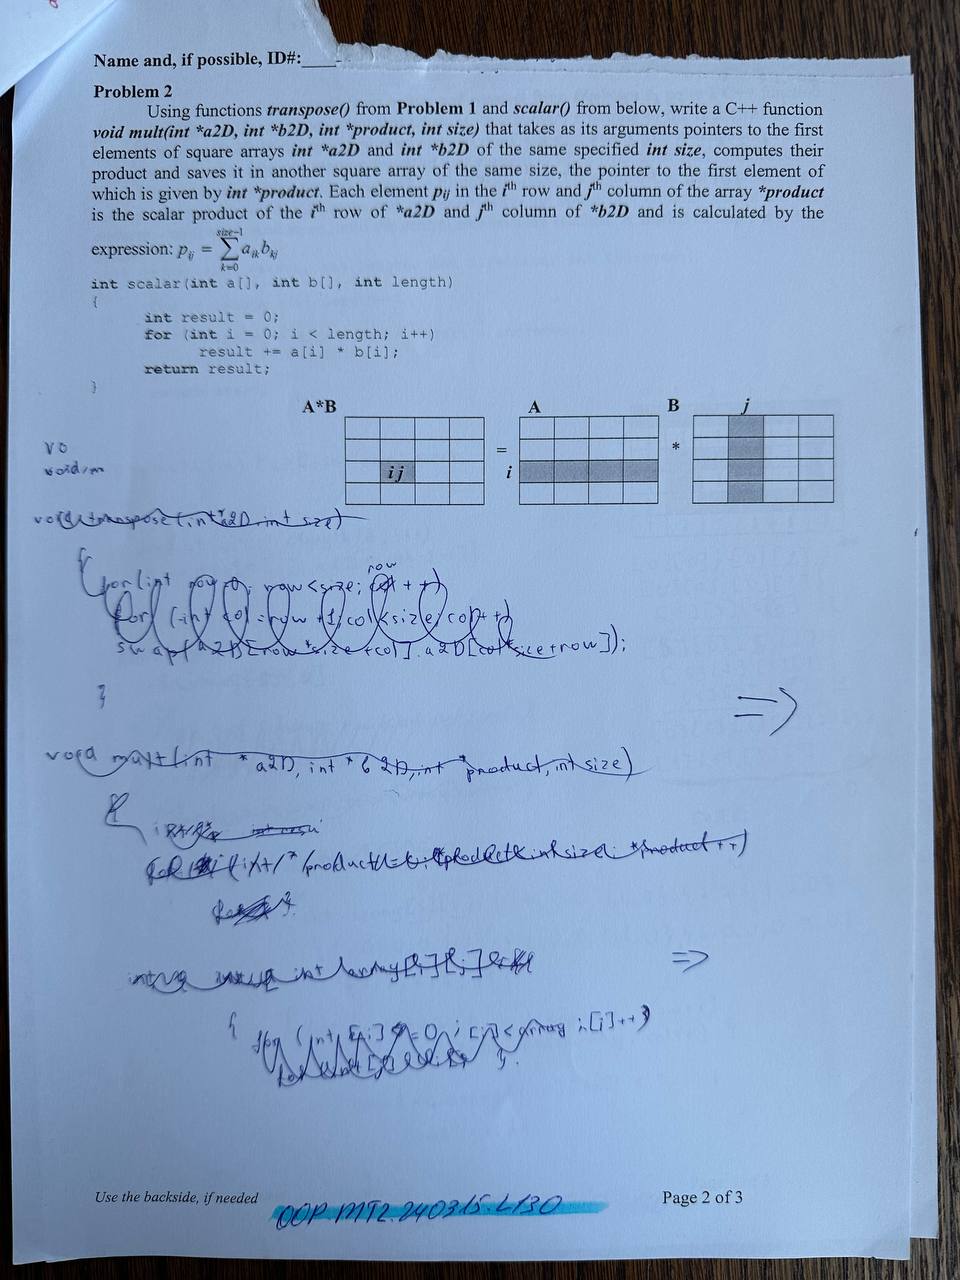 Name and, if possible, ID#:
Problem 2
Using functions transpose() from Problem 1 and scalar() from below, write a C++ function
void mult(int *a2D, int *b2D, int *product, int size) that takes as its arguments pointers to the first
elements of square arrays int *a2D and int *b2D of the same specified int size, computes their
product and saves it in another square array of the same size, the pointer to the first element of
which is given by int *product. Each element pij in the ith row and jth column of the array *product
is the scalar product of the ith row of *a2D and jth column of *b2D and is calculated by the
expression: pij = size-1 ∑ k=0 aik bkj
int scalar(int a[], int b[], int length)
{
int result = 0;
for (int i = 0; i < length; i++)
result += a[i] * b[i];
return result;
}
A*B A B j
ij = i *
vo
void m
void transpose (int *a2D, int size)
{
for (int row = 0; row < size; row ++)
for (int col = row + 1; col < size; col ++)
swap( a2D[row * size + col], a2D[col * size + row]);
}
=>
void mult(int * a2D, int * b2D, int *product, int size)
{
*product ++)
int array[i][j]
=>
{
Use the backside, if needed
OOP.MT2.240315.L130
Page 2 of 3